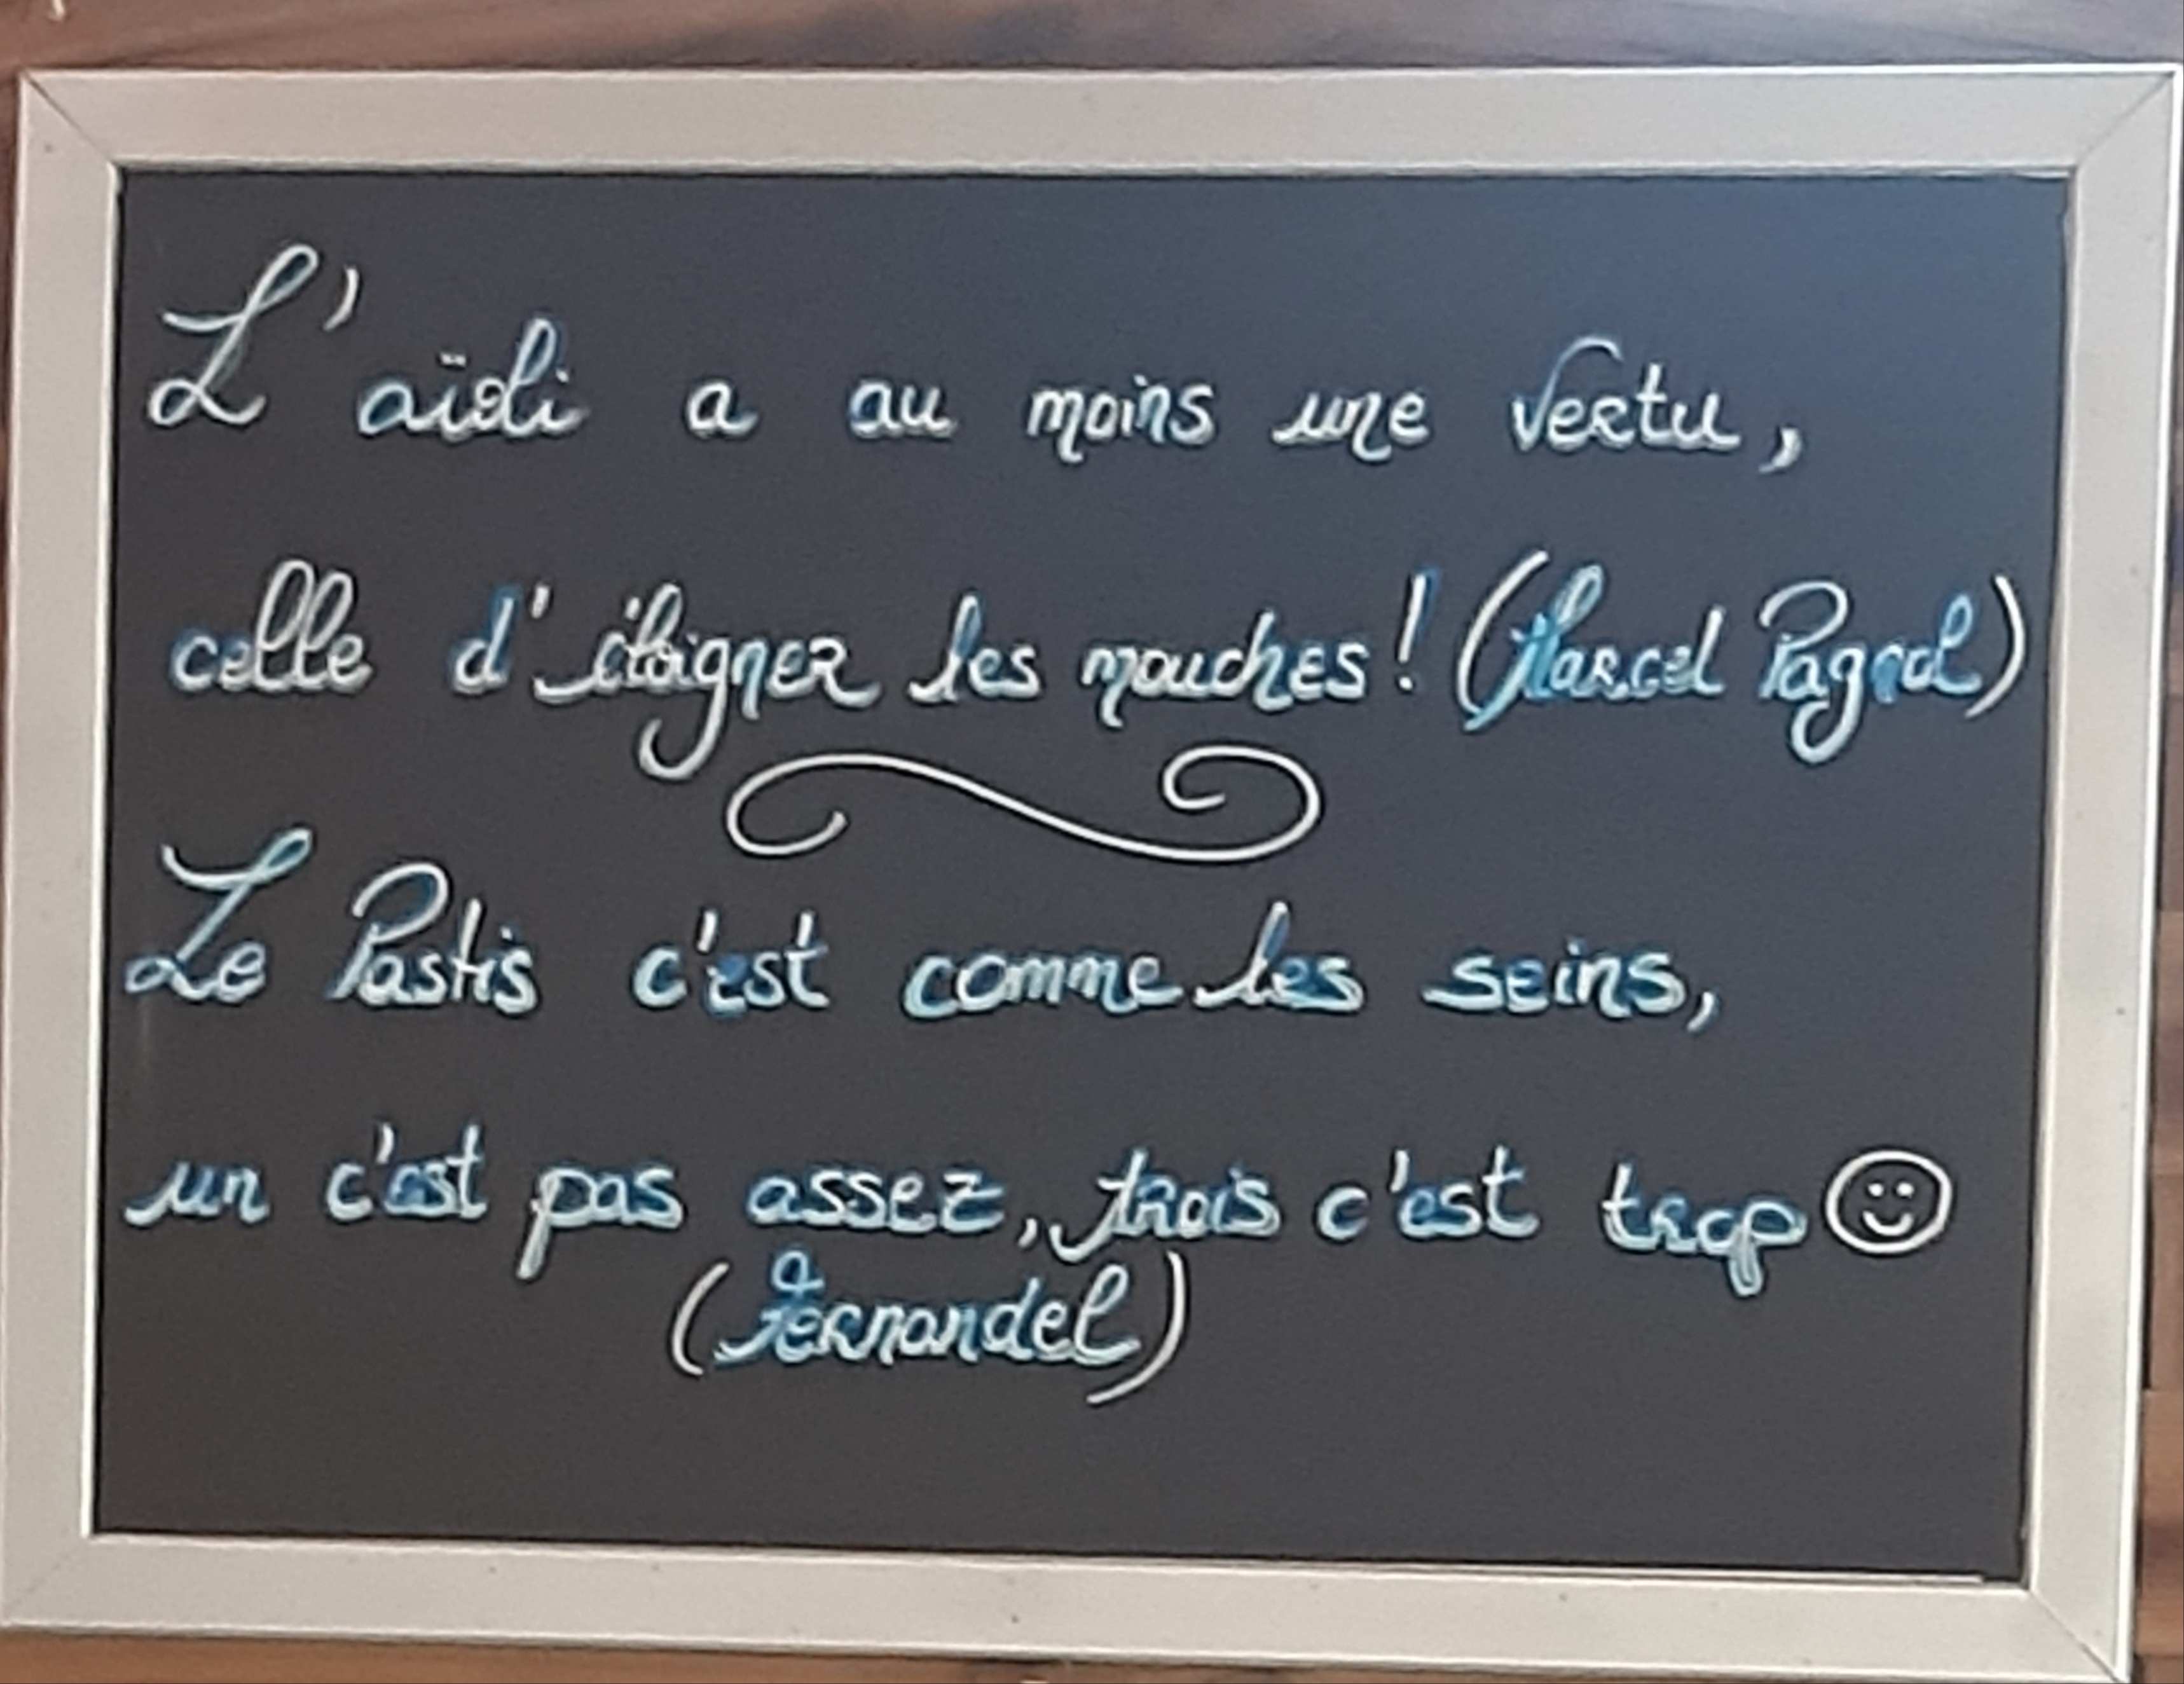 L'aïoli a au moins une vertu,
celle d'éloigner les mouches ! (Marcel Pagnol)
Le Pastis c'est comme les seins,
un c'est pas assez, trois c'est trop ☺
(Fernandel)